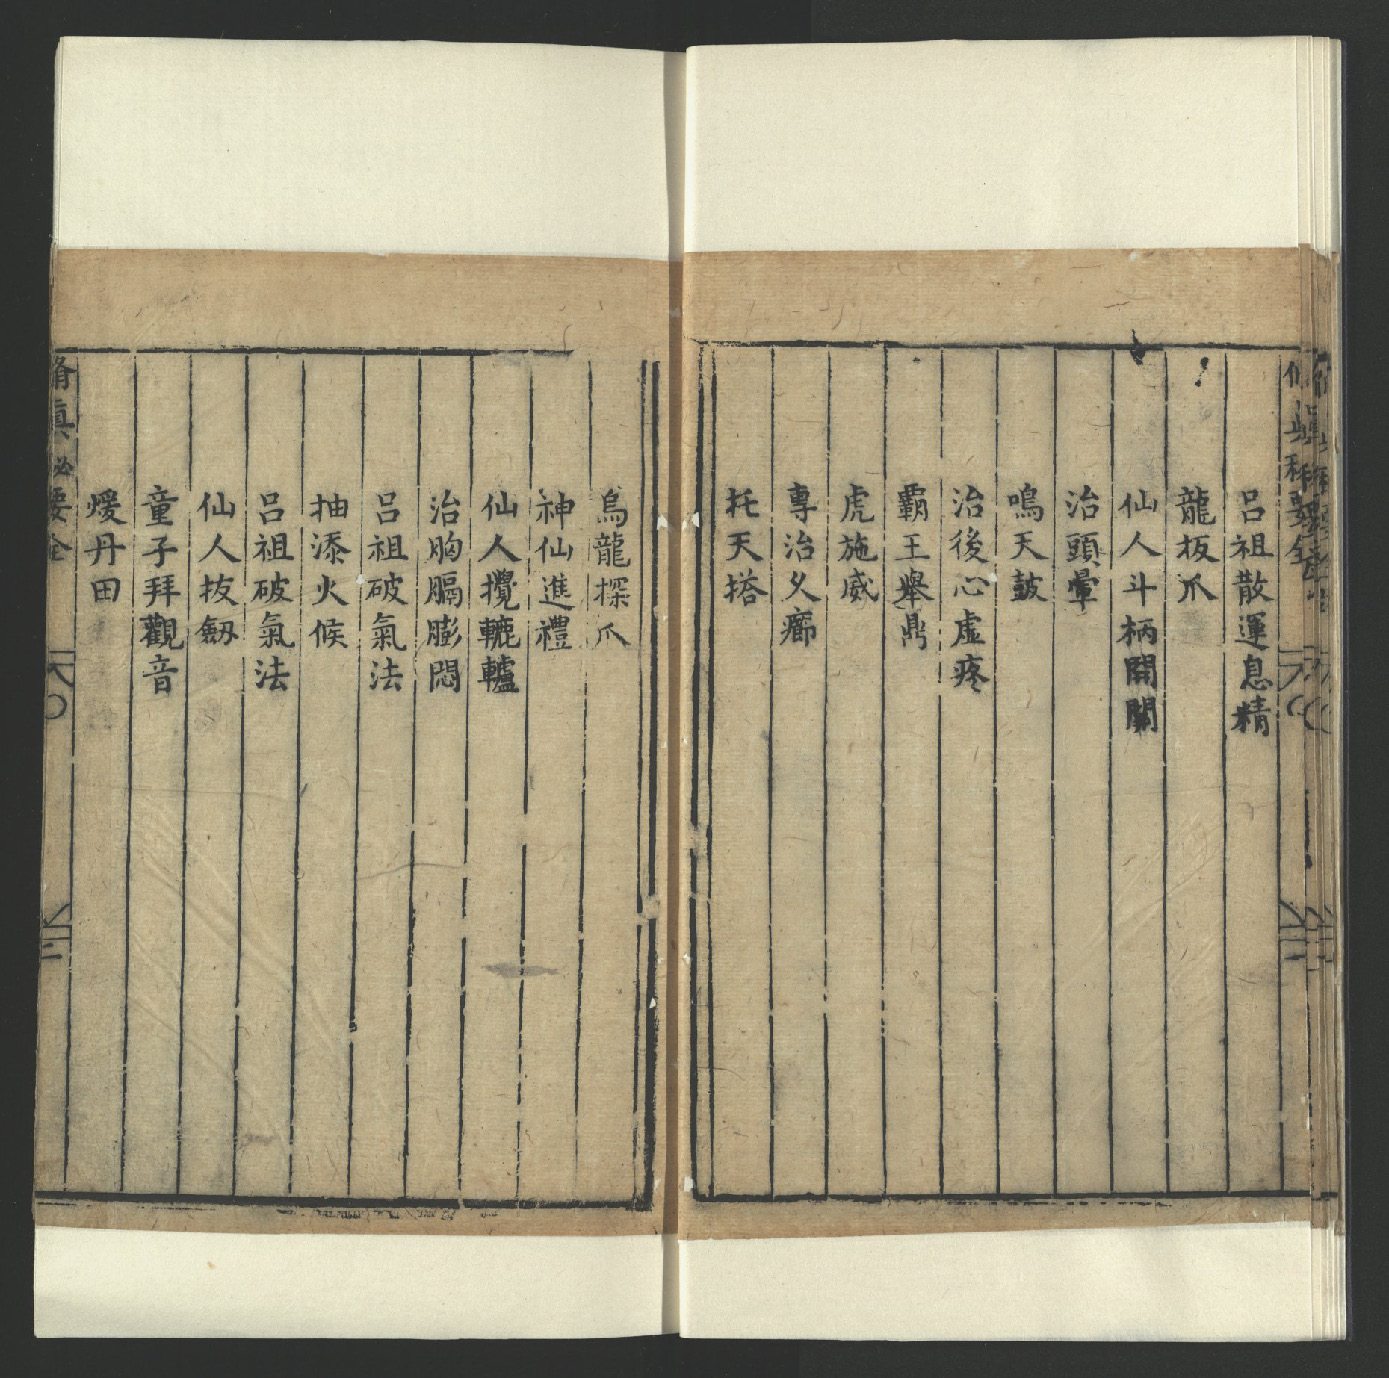 呂祖散運息精
龍扳爪
仙人斗柄開關
治頭暈
鳴天鼓
治後心虛疼
霸王舉鼎
虎施威
專治久癤
托天塔
烏龍探爪
神仙進禮
仙人攪轆轤
治胸膈膨悶
呂祖破氣法
抽添火候
呂祖破氣法
仙人拔劔
童子拜觀音
煖丹田
脩真必要全